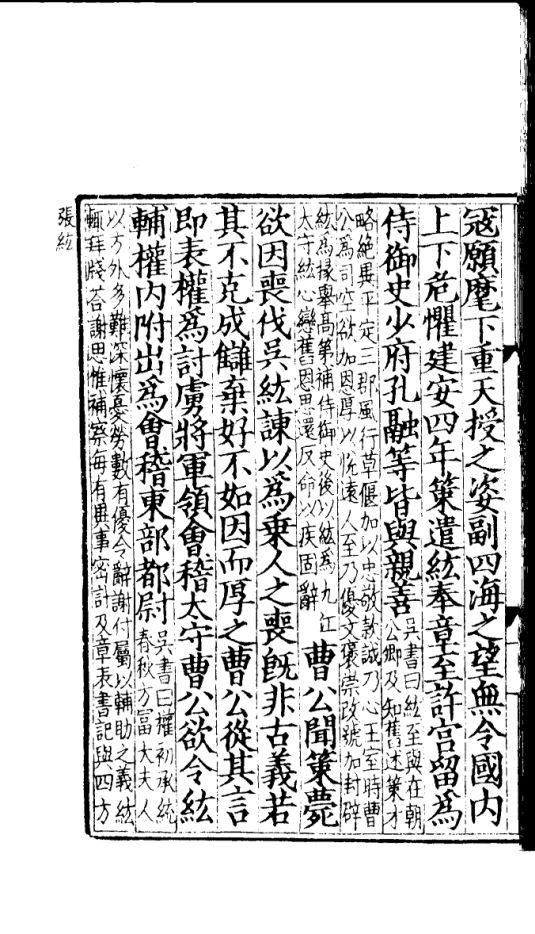 冦願麾下重天授之姿副四海之望無令國内
上下危懼建安四年策遣紘奉章至許宫留為
侍御史少府孔融等皆與親善吳書曰紘至與在朝
公卿及知舊述策才
略絶異平定三郡風行草偃加以忠敬款誠乃心王室時曹
公為司空欲加恩厚以恱遠人至乃優文襃崇改號加封辟
紘為掾舉高第補侍御史後以紘為九江
太守紘心戀舊恩思還反命以疾固辭
曹公聞策薨
欲因喪伐吳紘諫以為乗人之喪旣非古義若
其不克成讎棄好不如因而厚之曹公從其言
即表權為討虜將軍領會稽太守曹公欲令紘
輔權内附出為會稽東部都尉吳書曰權初承統
春秋方富太夫人
以方外多難深懷憂勞數有優令辭謝付屬以輔助之義紘
輒拜牋荅謝思惟補察毎有異事密計及章表書記與四方
張紘